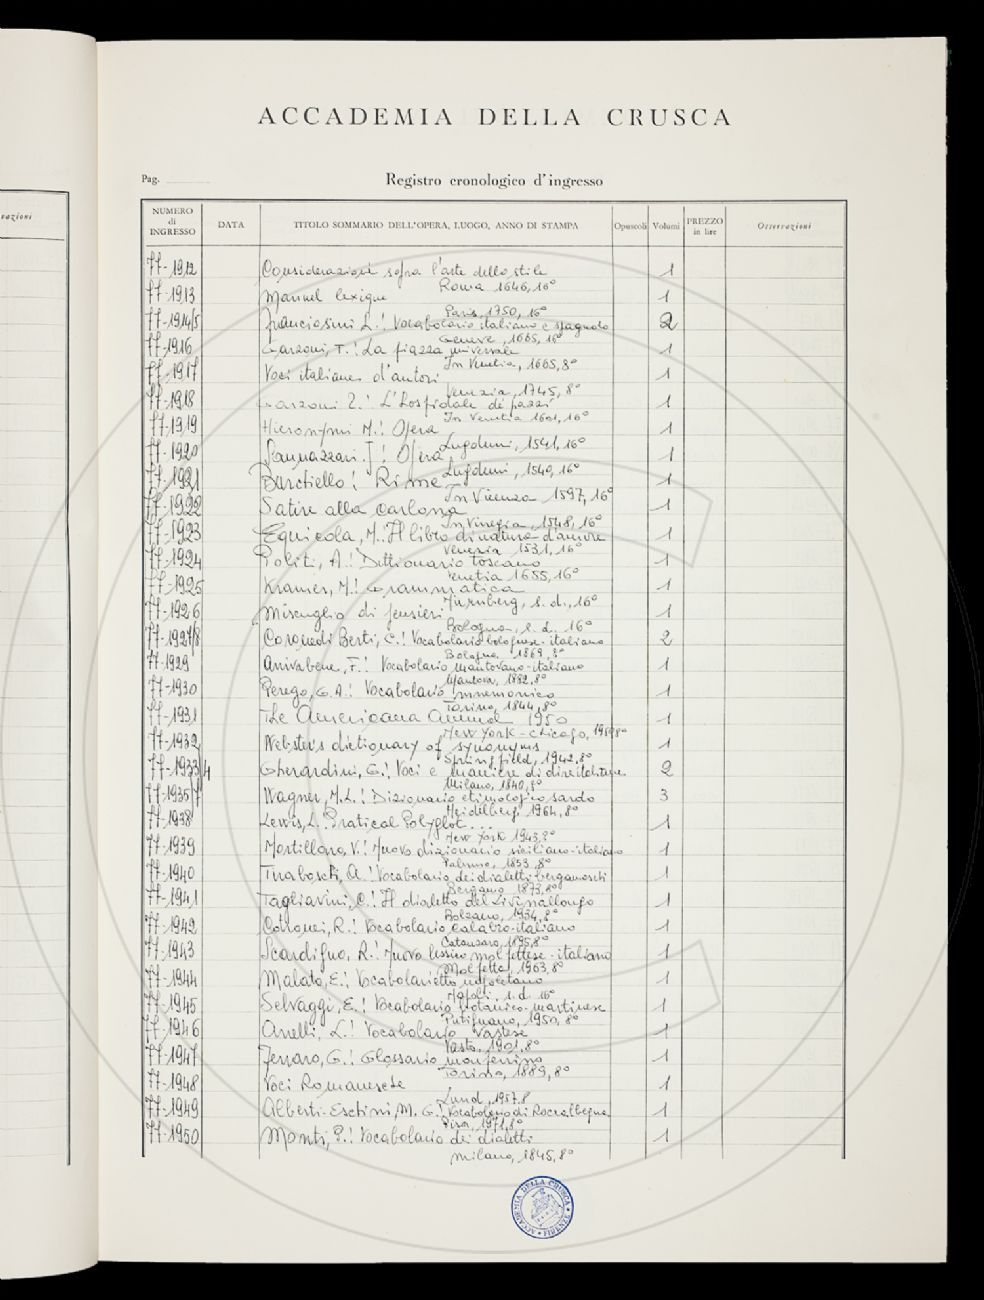 vazioni
ACCADEMIA DELLA CRUSCA
Pag.
Registro cronologico d'ingresso
NUMERO di INGRESSO DATA TITOLO SOMMARIO DELL'OPERA, LUOGO, ANNO DI STAMPA Opuscoli Volumi PREZZO in lire Osservazioni
77-1912 Considerazioni sopra l'arte dello stile 1
Roma 1646, 16°
77-1913 Manuel lexique 1
Paris, 1750, 16°
77-1914/5 Franciosini L.: Vocabolario italiano e spagnolo 2
Geneve, 1665, 16°
77-1916 Garzoni, T.: La piazza universale 1
In Venetia, 1665, 8°
77-1917 Voci italiane d'autori 1
Venezia, 1745, 8°
77-1918 Garzoni T.: L'Hospidale de' pazzi 1
In Venetia 1601, 16°
77-1919 Hieronymi M.: Opera 1
Lugduni, 1541, 16°
77-1920 Sannazzari. J: Opera 1
Lugduni, 1540, 16°
77-1921 Burchiello: Rime 1
In Vicenza 1597, 16°
77-1922 Satire alla carlona 1
In Vinegia, 1548, 16°
77-1923 Equicola, M.: Il libro di natura d'amore 1
Venezia 1531, 16°
77-1924 Politi, A.: Dittionario toscano 1
Venetia 1655, 16°
77-1925 Kramer, M.: Grammatica 1
Nurnberg, s.d., 16°
77-1926 Miscuglio di pensieri 1
Bologna, s.d. 16°
77-1927/8 Coronedi Berti, C.: Vocabolario bolognese-italiano 2
Bologna 1869, 8°
77-1929 Arrivabene, F.: Vocabolario mantovano-italiano 1
Mantova, 1882, 8°
77-1930 Perego, G.A.: Vocabolario mnemonico 1
Torino, 1844, 8°
77-1931 The Americana Annual 1950 1
New York-Chicago, 1950 8°
77-1932 Webster's dictionary of synonyms 1
Springfield, 1942, 8°
77-1933/4 Gherardini, G.: Voci e maniere di dire italiane 2
Milano, 1840, 8°
77-1935/7 Wagner, M.L.: Dizionario etimologico sardo 3
Heidelberg, 1964, 8°
77-1938 Lewis, L. Pratical Polyglot... 1
New York 1943, 8°
77-1939 Mortillaro, V.: Nuovo dizionario siciliano-italiano 1
Palermo, 1853, 8°
77-1940 Tiraboschi, A.: Vocabolario dei dialetti bergamaschi 1
Bergamo 1873, 8°
77-1941 Tagliavini, C.: Il dialetto del Livinallongo 1
Bolzano, 1934, 8°
77-1942 Cotronei, R.: Vocabolario calabro-italiano 1
Catanzaro, 1895, 8°
77-1943 Scardigno, R.: Nuovo lessico molfettese-italiano 1
Molfetta, 1963, 8°
77-1944 Malato, E.: Vocabolarietto napoletano 1
Napoli, s.d. 16°
77-1945 Selvaggi, E.: Vocabolario botanico-martinese 1
Putignano, 1950, 8°
77-1946 Anelli, L.: Vocabolario Vastese 1
Vasto, 1901, 8°
77-1947 Ferraro, G.: Glossario monferrino 1
Torino, 1889, 8°
77-1948 Voci Romanesche 1
Lund, 1957, 8
77-1949 Alberti-Eschini, M. G.: Vocabolario di Roccalbegna 1
Pisa, 1971, 8°
77-1950 Monti, P.: Vocabolario dei dialetti 1
Milano, 1845, 8°
ACCADEMIA DELLA CRUSCA
FIRENZE